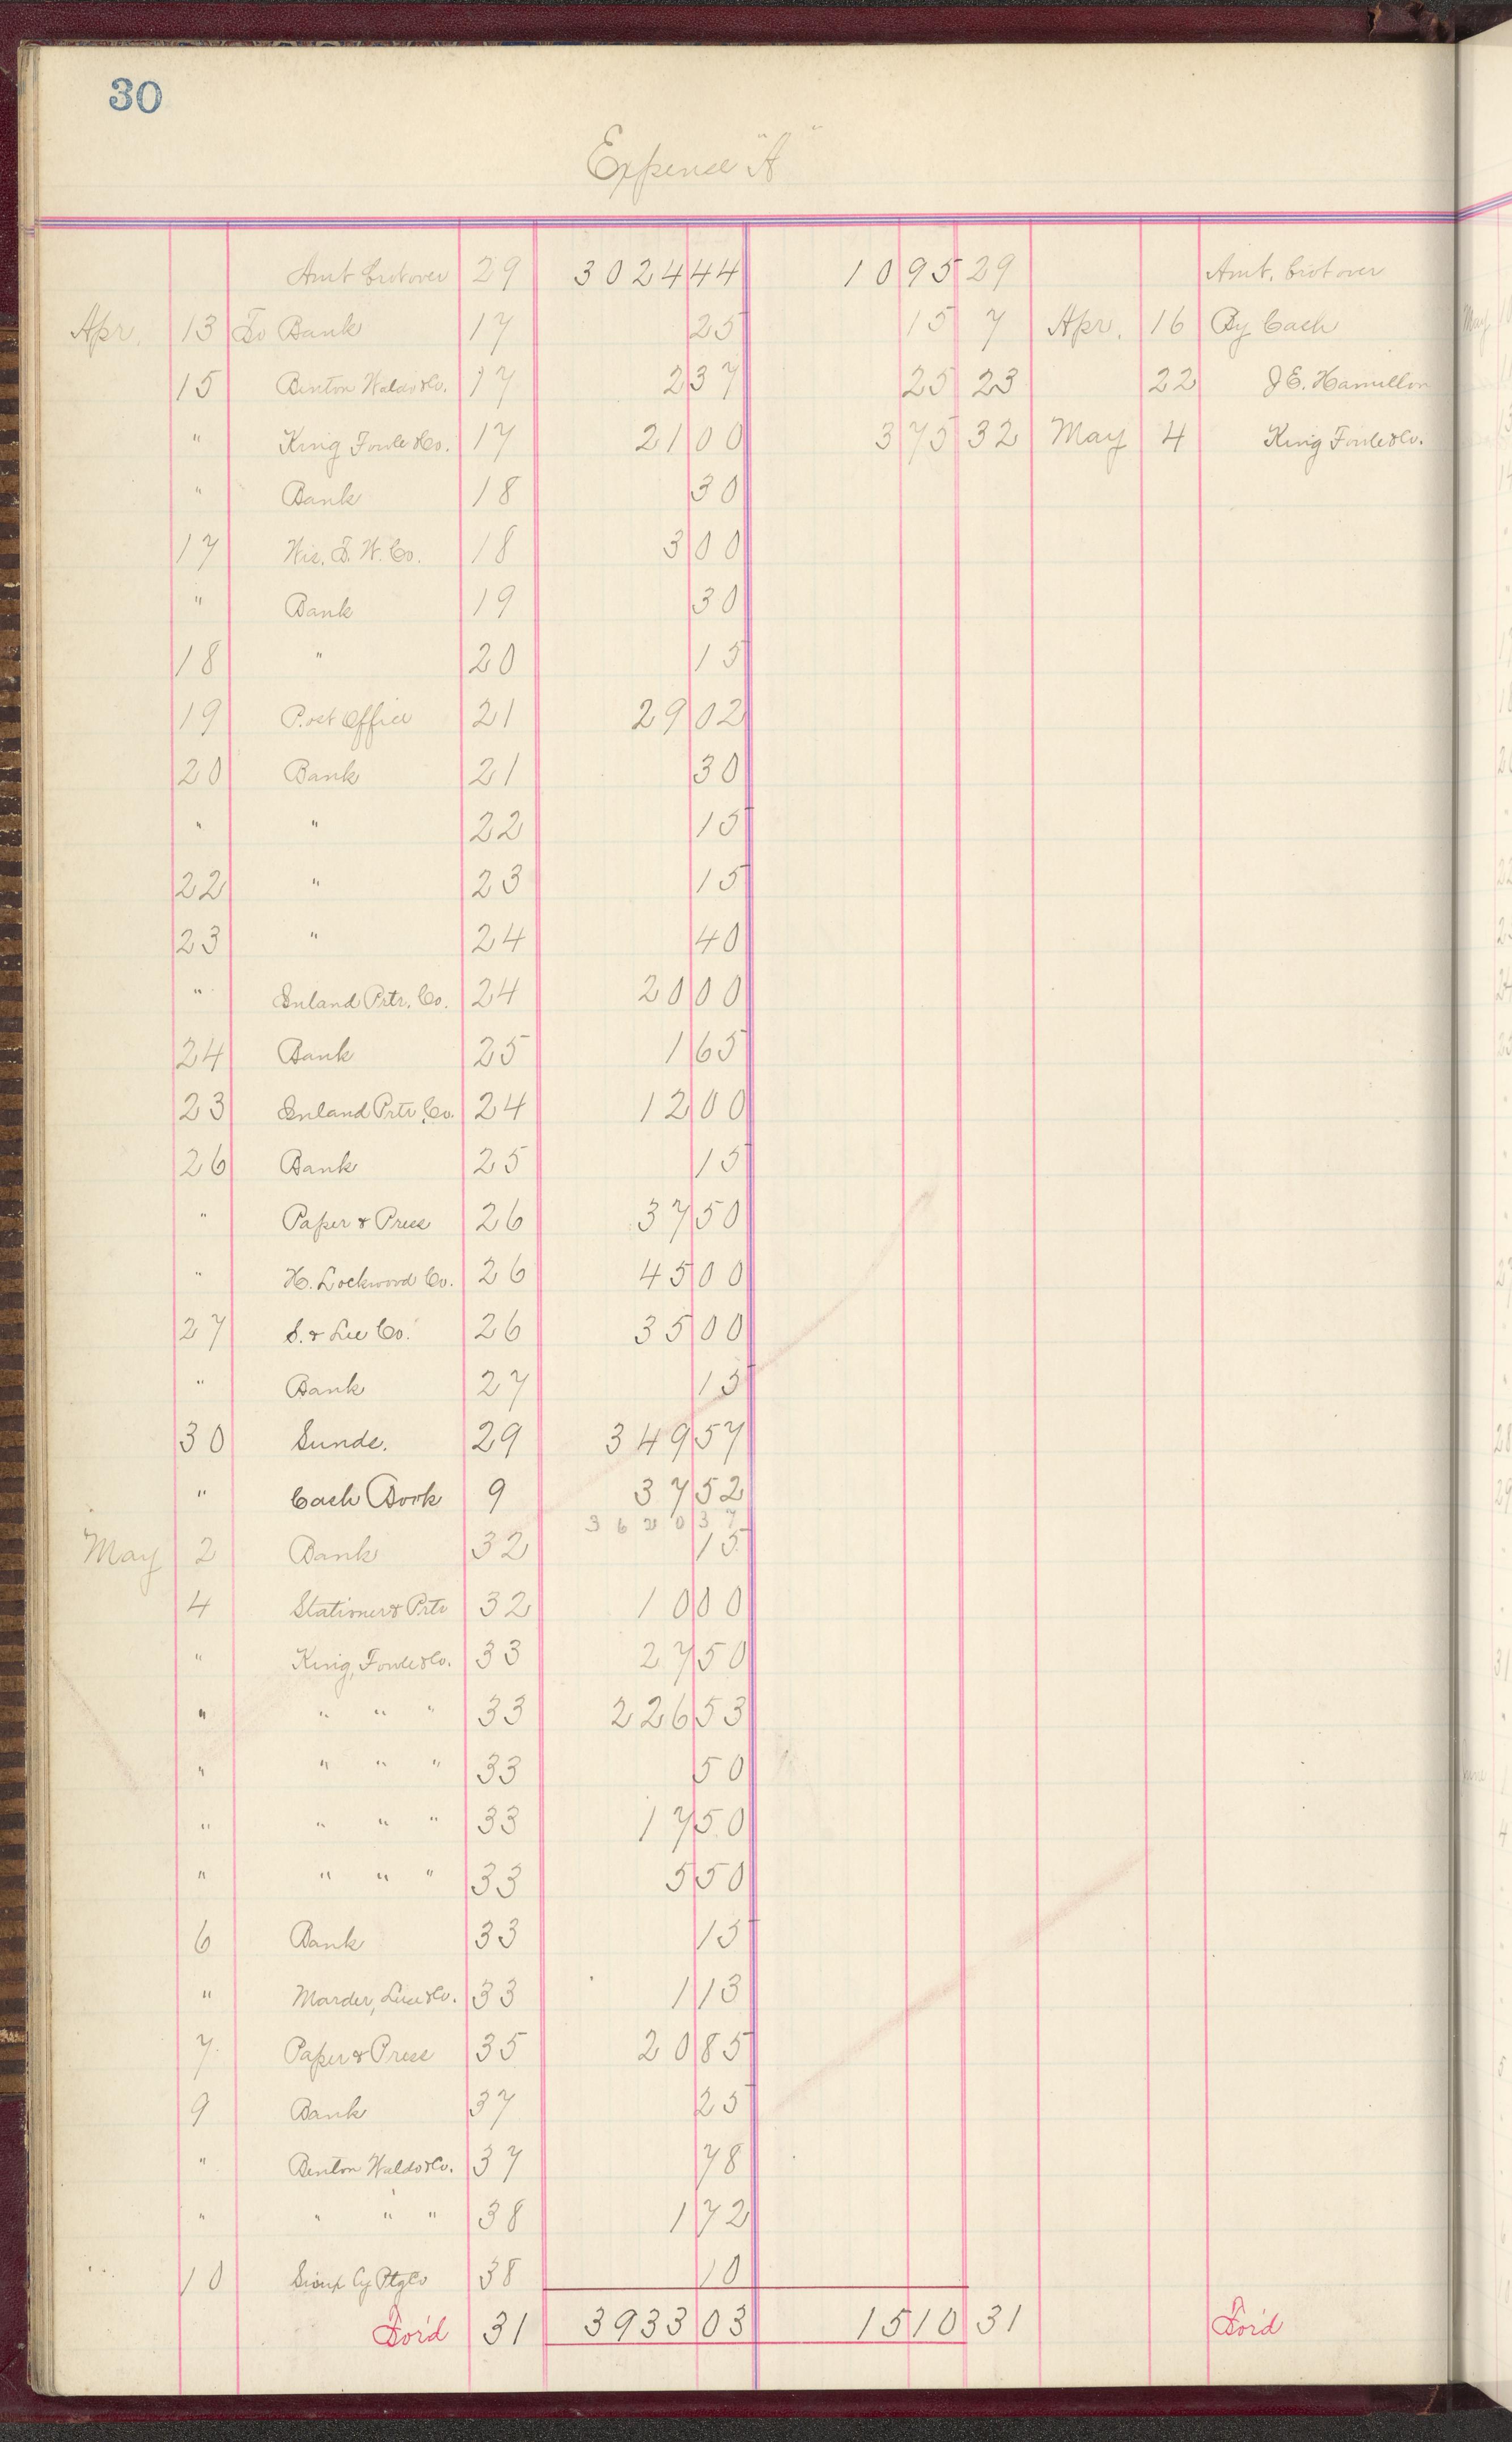 30
Expense "A"
Amt brot over 29 3024 44 10 95 29 Amt. brot over
Apr. 13 To Bank 17 25 15 7 Apr. 16 By Cash
15 Benton Waldo & Co. 17 2 37 25 23 22 J. E. Hamilton
" King Fowle & Co. 17 21 00 3 75 32 May 4 King Fowle & Co.
" Bank 18 30
17 Wis. T. W. Co. 18 3 00
" Bank 19 30
18 " 20 15
19 Post Office 21 29 02
20 Bank 21 30
" " 22 15
22 " 23 15
23 " 24 40
" Inland Prtr. Co. 24 20 00
24 Bank 25 1 65
23 Inland Prtr. Co. 24 12 00
26 Bank 25 15
" Paper & Press 26 37 50
" H. Lockwood Co. 26 45 00
27 S. & Lee Co. 26 35 00
" Bank 27 15
30 Sunds. 29 349 57
" Cash Book 9 37 52
3620 37
May 2 Bank 32 15
4 Stationer & Prtr 32 10 00
" King, Fowle & Co. 33 27 50
" " " " 33 226 53
" " " " 33 50
" " " " 33 17 50
" " " " 33 5 50
6 Bank 33 15
" Marder, Luse & Co. 33 1 13
7 Paper & Press 35 20 85
9 Bank 37 25
" Benton Waldo & Co. 37 78
" " " " 38 1 72
10 Sioux Cy Ptg Co 38 10
For'd 31 3933 03 15 10 31 For'd